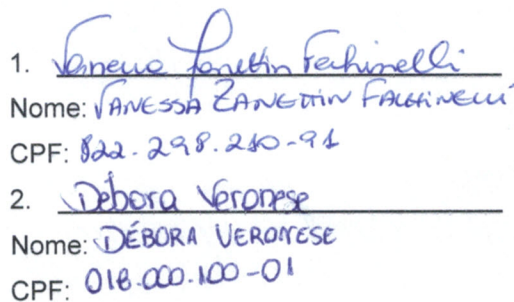 1. Vanessa Zanettin Fachinelli
Nome: VANESSA ZANETTIN FACHINELLI
CPF: 822.298.210-91
2. Débora Veronese
Nome: DÉBORA VERONESE
CPF: 018.000.100-01